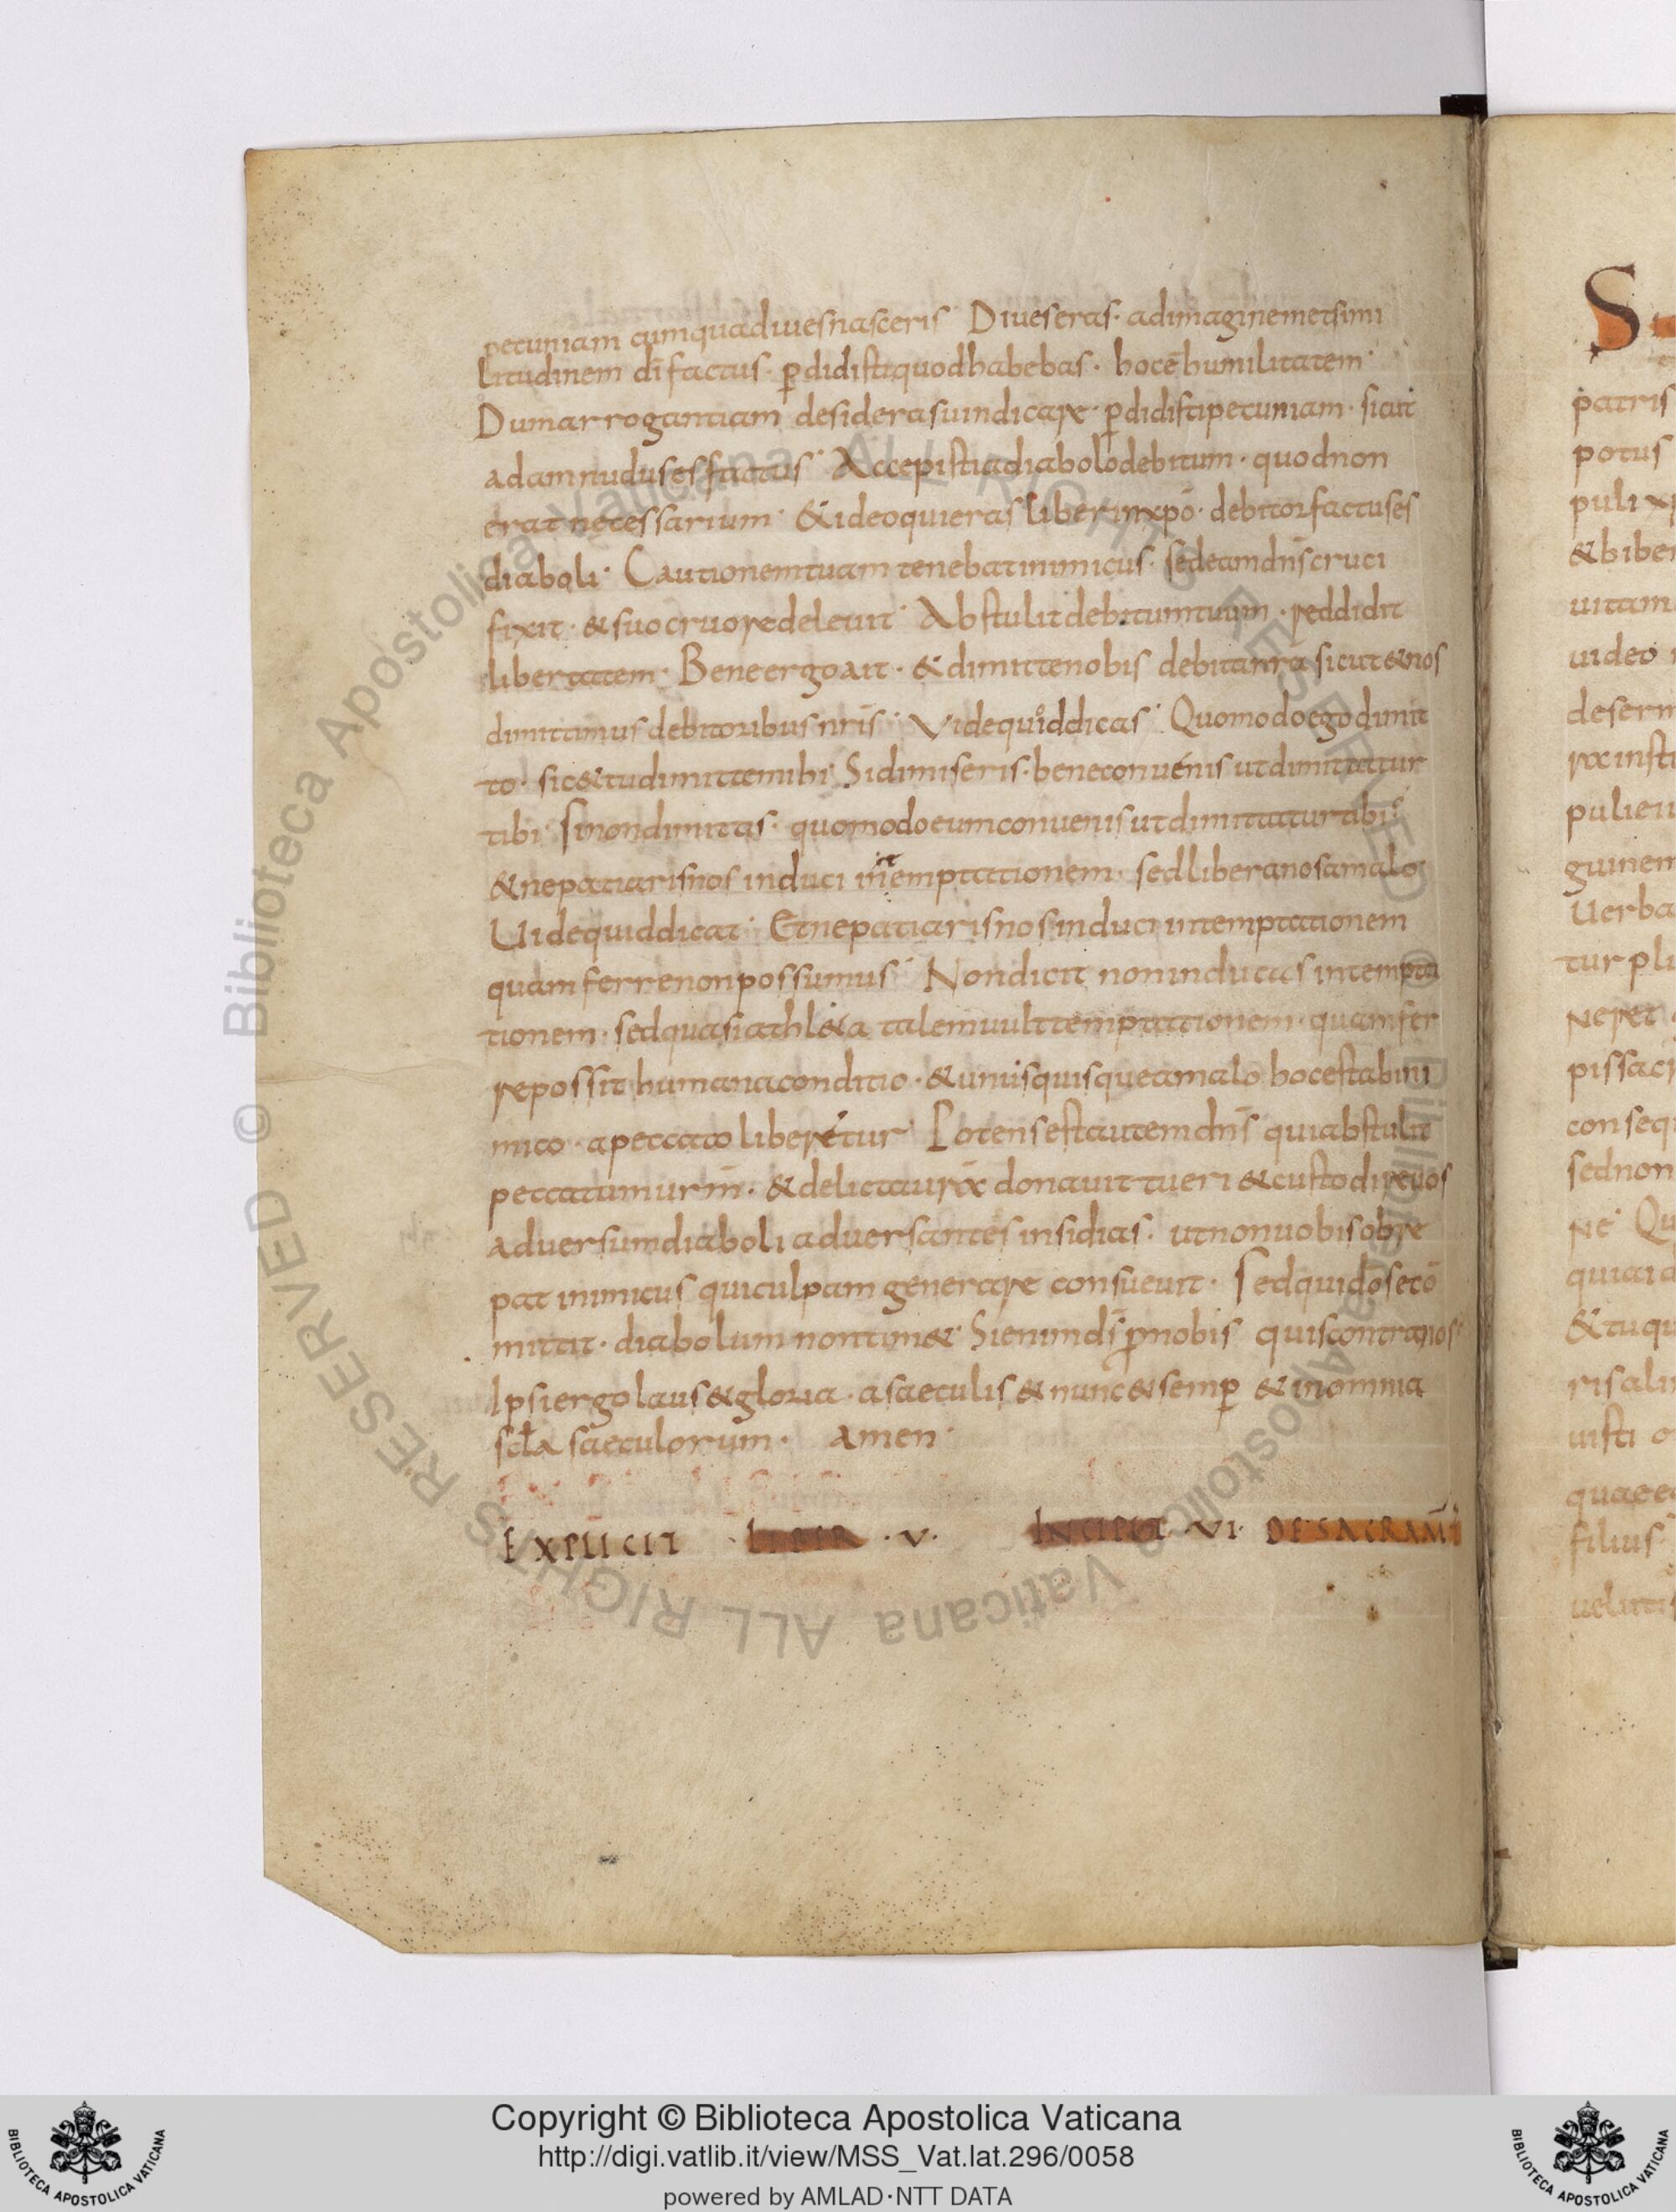 pecuniam cum qua diues nasceris· Diues eras· ad imaginem et simi
litudinem dī factus· ꝑdidisti quod habebas· hoc ē humilitatem·
Dum arrogantiam desideras uindicare· ꝑdidisti pecuniam· sicut
adam nudus es factus· Accepisti a diabolo debitum· quod non
erat necessarium· & ideo qui eras liber in xpō· debitor factus es
diaboli· Cautionem tuam tenebat inimicus· sed eam dn̄s cruci
fixit· & suo cruore deleuit· Abstulit debitum tuum· reddidit
libertatem· Bene ergo ait· & dimitte nobis debita nr̄a sicut & nos
dimittimus debitoribus nr̄is· Vide quid dicas· Quomodo ego dimit
to· sic & tu dimitte mihi· Si dimiseris· bene conuenis ut dimittatur
tibi· Si non dimittas· quomodo eum conuenis ut dimittatur tibi·
& ne patiaris nos induci in temptationem· sed libera nos a malo
Uide quid dicat· Et ne patiaris nos induci in temptationem
quam ferre non possumus· Non dicit non inducas in tempta
tionem· sed quasi athl&a talem uult temptationem· quam fer
re possit humana conditio· & unusquisque a malo hoc est ab ini
mico· a peccato liberetur· Potens est autem dn̄s qui abstulit
peccatum ur̄m· & delicta ur̄a donauit tueri & custodire uos
aduersum diaboli aduersantes insidias· ut non uobis obre
pat inimicus qui culpam generare consueuit· Sed qui do se cō
mittit· diabolum non tim&· Si enim dī ꝓ nobis quis contra nos·
Ipsi ergo laus & gloria· a saeculis & nunc & semꝑ & in omnia
scl̄a saeculorum· amen·
EXPLICIT LIBER ·V· INCIPIT ·VI· DE SACRAM̄
S
patris
potus
puli
& biber
uitam
uideo
puli
guinem
Uerba
tur
conseq
sed non
quia
& tu
filius
Copyright © Biblioteca Apostolica Vaticana
http://digi.vatlib.it/view/MSS_Vat.lat.296/0058
powered by AMLAD·NTT DATA
BIBLIOTECA APOSTOLICA VATICANA
BIBLIOTECA APOSTOLICA VATICANA
© Biblioteca Apostolica Vaticana ALL RIGHTS RESERVED
© Biblioteca Apostolica Vaticana ALL RIGHTS RESERVED